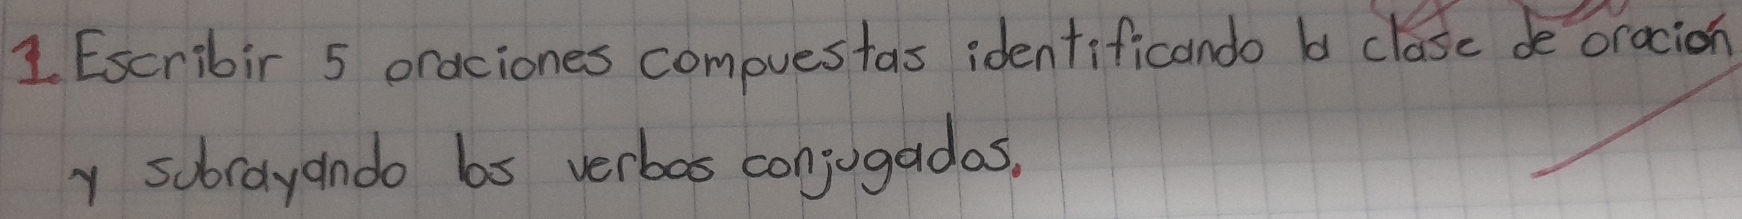 1. Escribir 5 oraciones compuestas identificando la clase de oración
y subrayando los verbos conjugados.